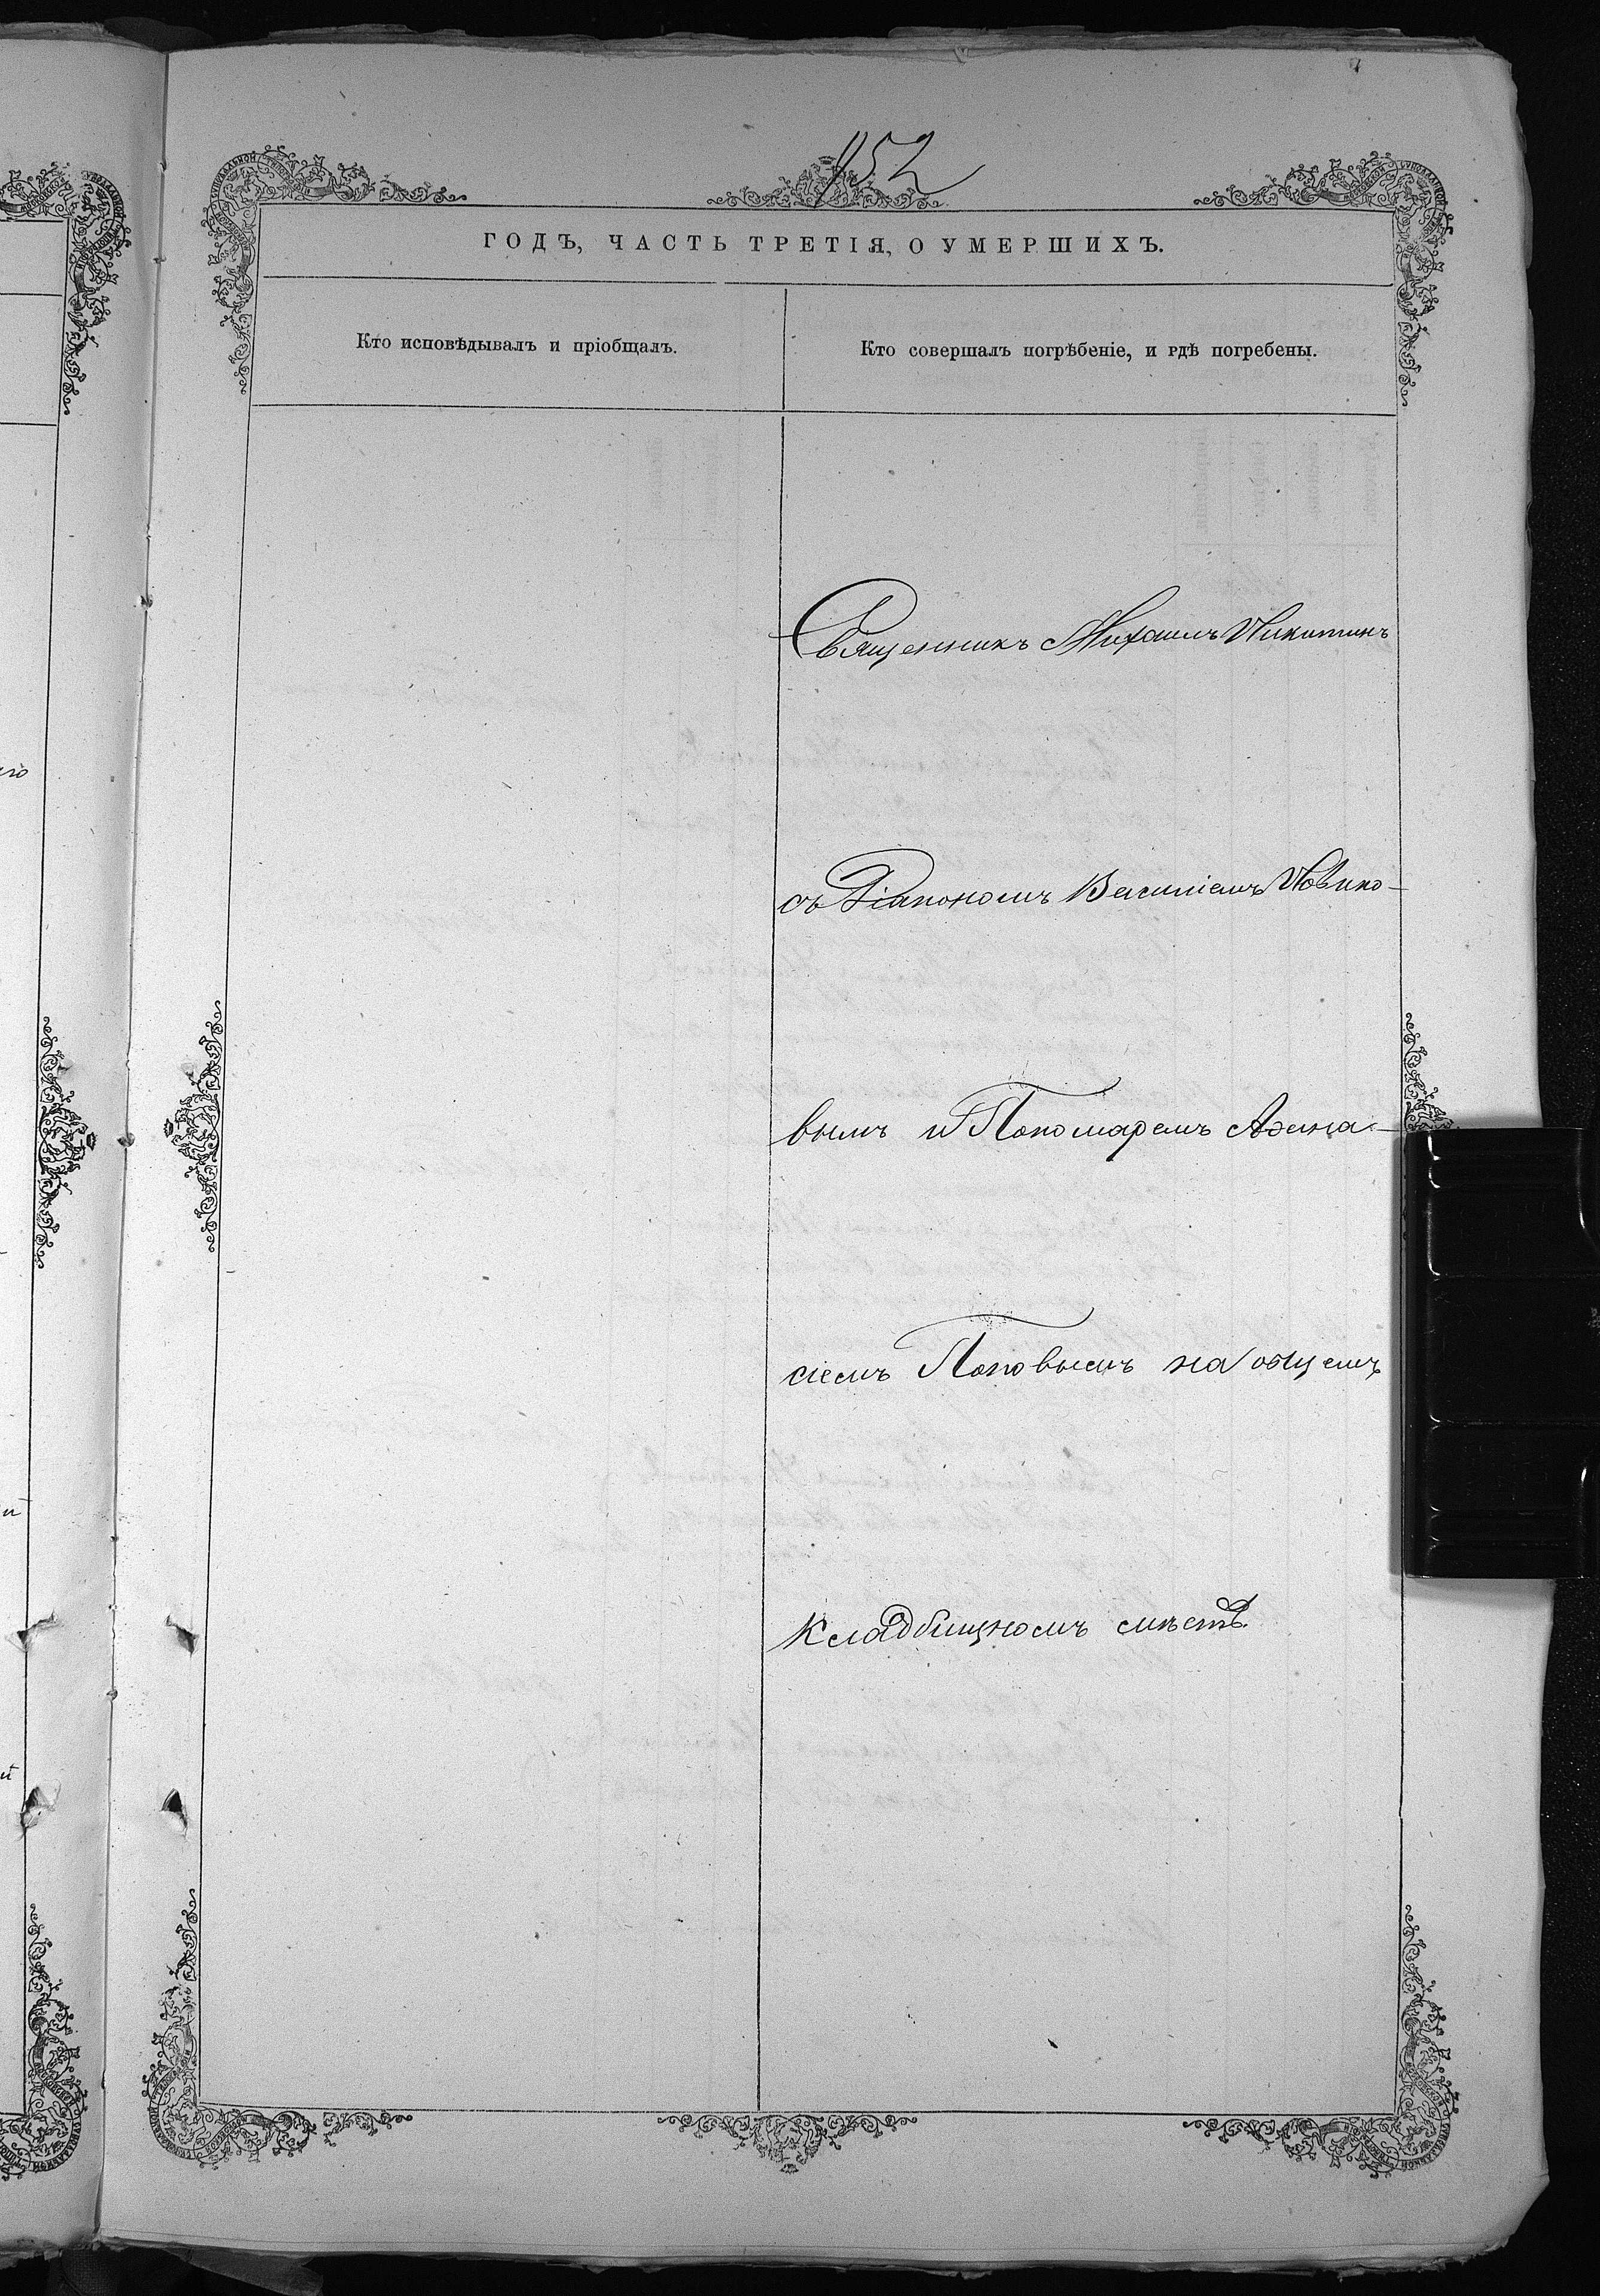 952
ГОДЪ, ЧАСТЬ ТРЕТІЯ, О УМЕРШИХЪ.
Кто исповѣдывалъ и пріобщалъ.
Кто совершалъ погрѣбеніе, и гдѣ погребены.
Священникъ Михаилъ Никитинъ
съ Діакономъ Василіемъ Новико-
вымъ и Пономаремъ Аѳана-
сіемъ Поповымъ на общемъ
кладбищномъ мѣстѣ.